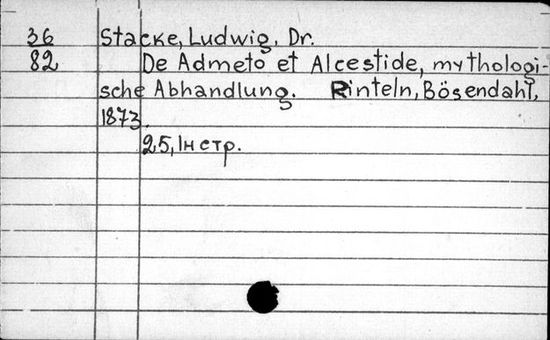 36 Stacke, Ludwig, Dr.
82 De Admeto et Alcestide, mythologi-
sche Abhandlung. Rinteln, Bösendahl,
1873.
25, 1н стр.